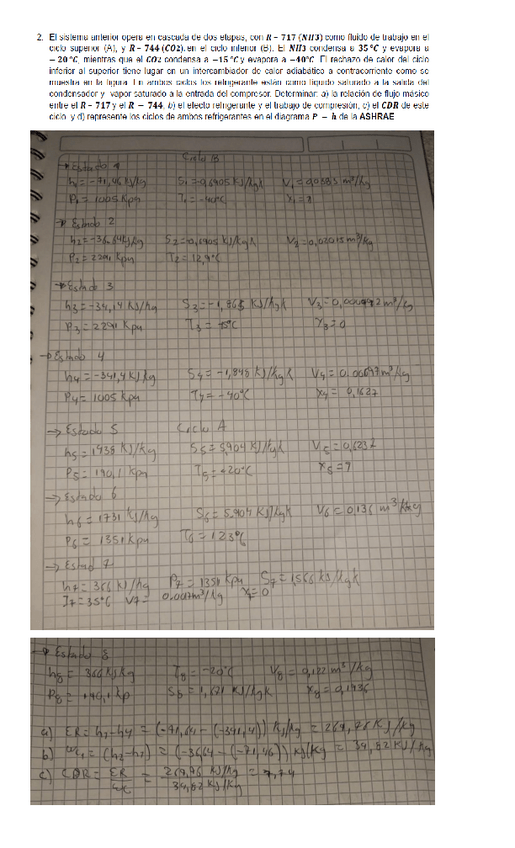 2. El sistema anterior opera en cascada de dos etapas, con R - 717 (NH3) como fluido de trabajo en el
ciclo superior (A), y R - 744 (CO2), en el ciclo inferior (B). El NH3 condensa a 35°C y evapora a
- 20°C, mientras que el CO2 condensa a -15°C y evapora a -40°C. El rechazo de calor del ciclo
inferior al superior tiene lugar en un intercambiador de calor adiabático a contracorriente como se
muestra en la figura. En ambos ciclos los refrigerante están como líquido saturado a la salida del
condensador y vapor saturado a la entrada del compresor. Determinar: a) la relación de flujo másico
entre el R - 717 y el R - 744, b) el efecto refrigerante y el trabajo de compresión, c) el CDR de este
ciclo y d) represente los ciclos de ambos refrigerantes en el diagrama P - h de la ASHRAE
Ciclo B
→ Estado 1
h1 = -71,46 KJ/kg
P1 = 1005 Kpa T1 = -40°C
→ Estado 2
P2 = 2291 Kpa T2 = 12,9°C
→ Estado 3
P3 = 2291 Kpa X3 = 0
→ Estado 4
h4 = -341,4 KJ/kg
P4 = 1005 Kpa T4 = -40°C X4 = 0,1627
→ Estado 5 Ciclo A
h5 = 1438 KJ/Kg S5 = 5,904 KJ/kgK
P5 = 190,1 Kpa
→ Estado 6
h6 = 1731 KJ/kg S6 = 5,904 KJ/kgK V6 = 0,136 m³/kg
P6 = 1351 Kpa T6 = 123°C
→ Estado 7
h7 = 366 KJ/kg P7 = 1351 Kpa S7 = 1,566 KJ/kgK
T7 = 35°C X7 = 0
→ Estado 8
h8 = 366 KJ/kg T8 = -20°C V8 = 0,122 m³/kg
S8 = 1,671 KJ/kgK X8 = 0,1936
a) ER = h1 - h4 = (-71,64 - (-341,4)) KJ/kg = 269,76 KJ/kg
b) wc1 = (h2 - h1) = (-36,64 - (-71,46)) KJ/Kg = 34,82 KJ/kg
c) CDR = ER/wc = 269,76 KJ/kg / 34,82 KJ/kg = 7,74